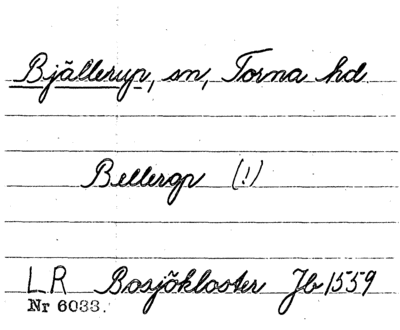 Bjällerup, sn, Torna hd
Bellerop (!)
LR Bosjökloster Jb 1559
Nr 6033.